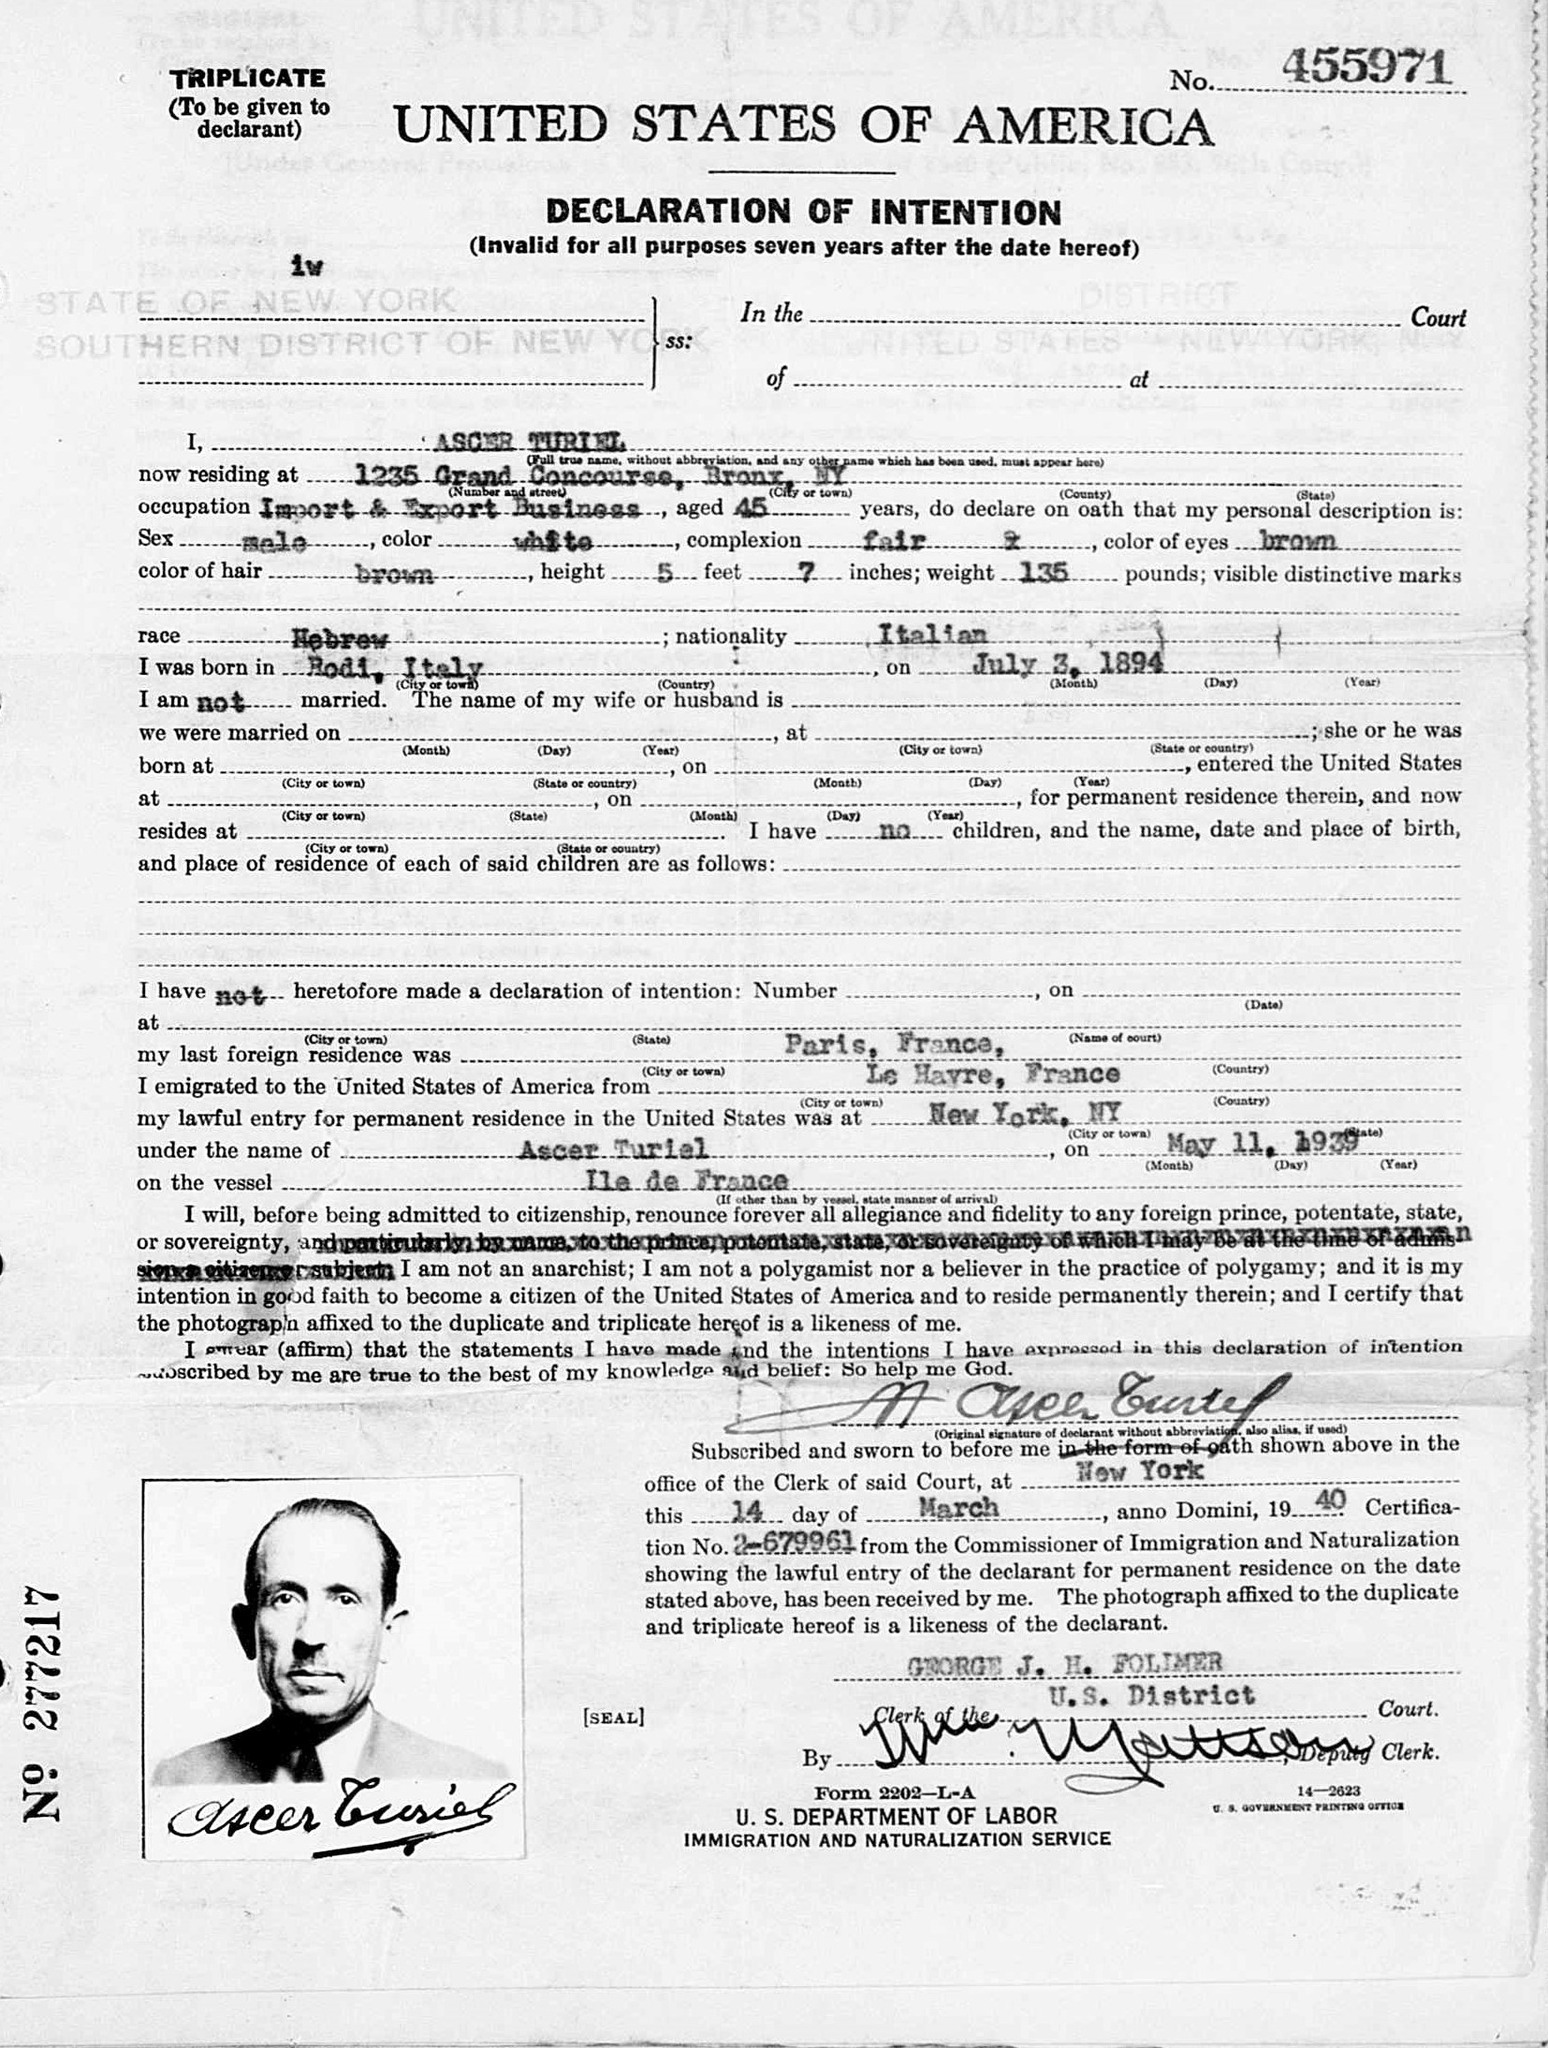 TRIPLICATE
(To be given to
declarant)
No. 455971
UNITED STATES OF AMERICA
DECLARATION OF INTENTION
(Invalid for all purposes seven years after the date hereof)
iw
STATE OF NEW YORK
SOUTHERN DISTRICT OF NEW YORK
ss:
In the DISTRICT Court
of UNITED STATES at NEW YORK, N.Y.
I, ASCER TURIEL
(Full true name, without abbreviation, and any other name which has been used, must appear here)
now residing at 1235 Grand Concourse, Bronx, NY
(Number and street) (City or town) (County) (State)
occupation Import & Export Business, aged 45 years, do declare on oath that my personal description is:
Sex male, color white, complexion fair, color of eyes brown
color of hair brown, height 5 feet 7 inches; weight 135 pounds; visible distinctive marks
race Hebrew; nationality Italian
I was born in Rodi, Italy, on July 3, 1894
(City or town) (Country) (Month) (Day) (Year)
I am not married. The name of my wife or husband is
we were married on , at ; she or he was
(Month) (Day) (Year) (City or town) (State or country)
born at , on , entered the United States
(City or town) (State or country) (Month) (Day) (Year)
at , on , for permanent residence therein, and now
(City or town) (State) (Month) (Day) (Year)
resides at . I have no children, and the name, date and place of birth,
(City or town) (State or country)
and place of residence of each of said children are as follows:
I have not heretofore made a declaration of intention: Number , on
(Date)
at
(City or town) (State) (Name of court)
my last foreign residence was Paris, France,
(City or town) (Country)
I emigrated to the United States of America from Le Havre, France
(City or town) (Country)
my lawful entry for permanent residence in the United States was at New York, NY
(City or town) (State)
under the name of Ascer Turiel, on May 11, 1939
(Month) (Day) (Year)
on the vessel Ile de France
(If other than by vessel, state manner of arrival)
I will, before being admitted to citizenship, renounce forever all allegiance and fidelity to any foreign prince, potentate, state,
or sovereignty, and particularly, by name, to the prince, potentate, state, or sovereignty of which I may be at the time of admis
sion a citizen or subject; I am not an anarchist; I am not a polygamist nor a believer in the practice of polygamy; and it is my
intention in good faith to become a citizen of the United States of America and to reside permanently therein; and I certify that
the photograph affixed to the duplicate and triplicate hereof is a likeness of me.
I swear (affirm) that the statements I have made and the intentions I have expressed in this declaration of intention
subscribed by me are true to the best of my knowledge and belief: So help me God.
Ascer Turiel
(Original signature of declarant without abbreviation, also alias, if used)
Subscribed and sworn to before me in the form of oath shown above in the
office of the Clerk of said Court, at New York
this 14 day of March, anno Domini, 19 40 Certifica-
tion No. 2-679961 from the Commissioner of Immigration and Naturalization
showing the lawful entry of the declarant for permanent residence on the date
stated above, has been received by me. The photograph affixed to the duplicate
and triplicate hereof is a likeness of the declarant.
GEORGE J. H. FOLLMER
U.S. District
Clerk of the Court.
[SEAL]
By Mattson, Deputy Clerk.
Form 2202—L-A
U. S. DEPARTMENT OF LABOR
IMMIGRATION AND NATURALIZATION SERVICE
14—2623
U. S. GOVERNMENT PRINTING OFFICE
No 277217
Ascer Turiel